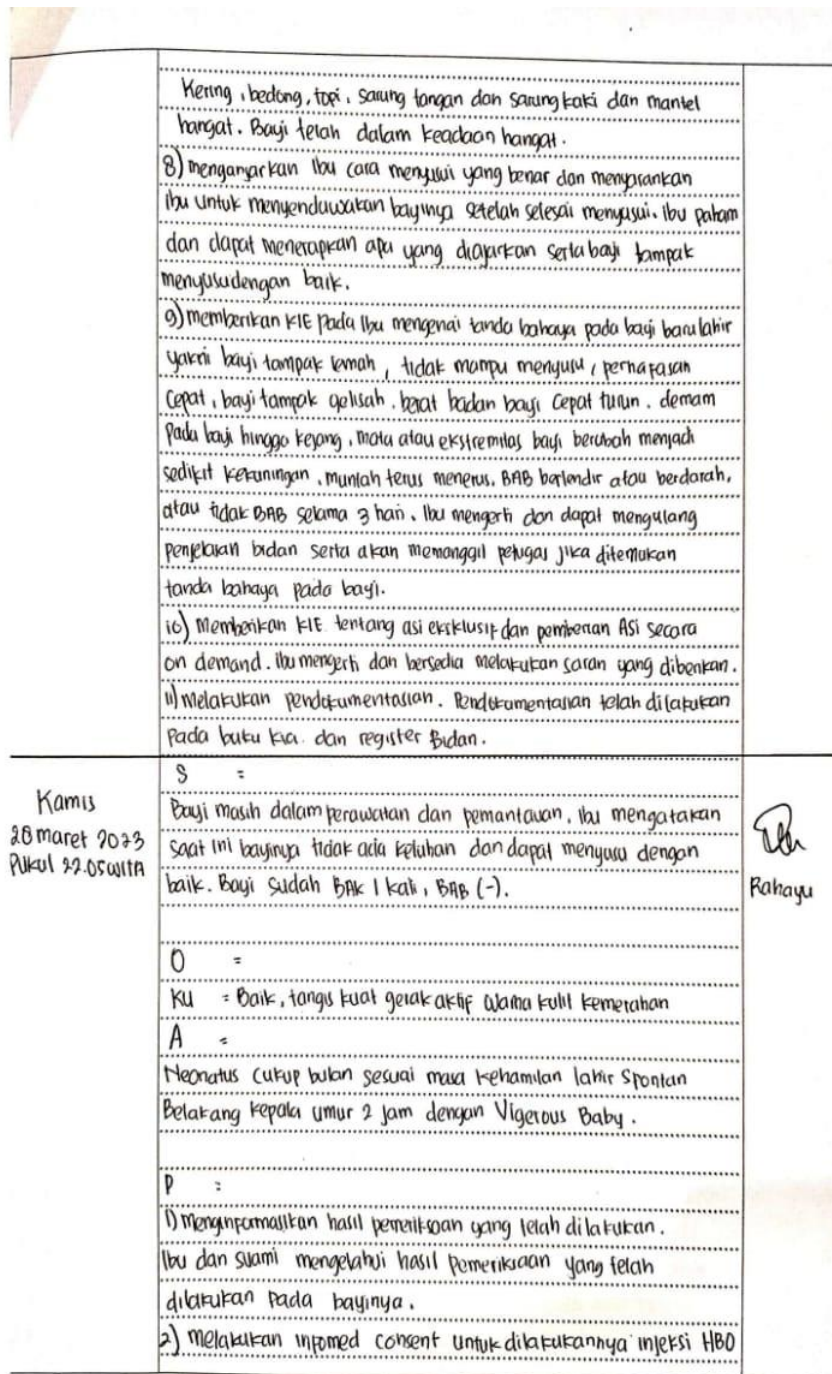 Kering, bedong, topi, sarung tangan dan sarung kaki dan mantel
hangat. Bayi telah dalam keadaan hangat.
8) mengajarkan Ibu cara menyusui yang benar dan menyarankan
Ibu untuk menyendawakan bayinya setelah selesai menyusui. Ibu paham
dan dapat menerapkan apa yang diajarkan serta bayi tampak
menyusu dengan baik.
9) memberikan KIE pada Ibu mengenai tanda bahaya pada bayi baru lahir
yakni bayi tampak lemah, tidak mampu menyusu, pernafasan
Cepat, bayi tampak gelisah, berat badan bayi Cepat turun. demam
Pada bayi hingga kejang, mata atau ekstremitas bayi berubah menjadi
sedikit kekuningan, muntah terus menerus, BAB berlendir atau berdarah,
atau tidak BAB selama 3 hari. Ibu mengerti dan dapat mengulang
penjelasan bidan serta akan memanggil petugas jika ditemukan
tanda bahaya pada bayi.
10) Memberikan KIE tentang asi eksklusif dan pemberian ASI secara
on demand. Ibu mengerti dan bersedia melakukan saran yang diberikan.
11) Melakukan pendokumentasian. Pendokumentasian telah dilakukan
Pada buku kia. dan register Bidan.
Kamis
28 maret 2023
Pukul 22.05 WITA
S =
Bayi masih dalam perawatan dan pemantauan, Ibu mengatakan
saat ini bayinya tidak ada keluhan dan dapat menyusu dengan
baik. Bayi sudah BAK 1 kali, BAB (-).
O =
KU = Baik, tangis kuat gerak aktif warna kulit kemerahan
A =
Neonatus Cukup bulan sesuai masa kehamilan lahir Spontan
Belakang kepala umur 2 jam dengan Vigerous Baby.
P :
1) menginformasikan hasil pemeriksaan yang telah dilakukan.
Ibu dan suami mengetahui hasil pemeriksaan yang telah
dilakukan pada bayinya.
2) melakukan infomed consent untuk dilakukannya injeksi HB0
Rahayu